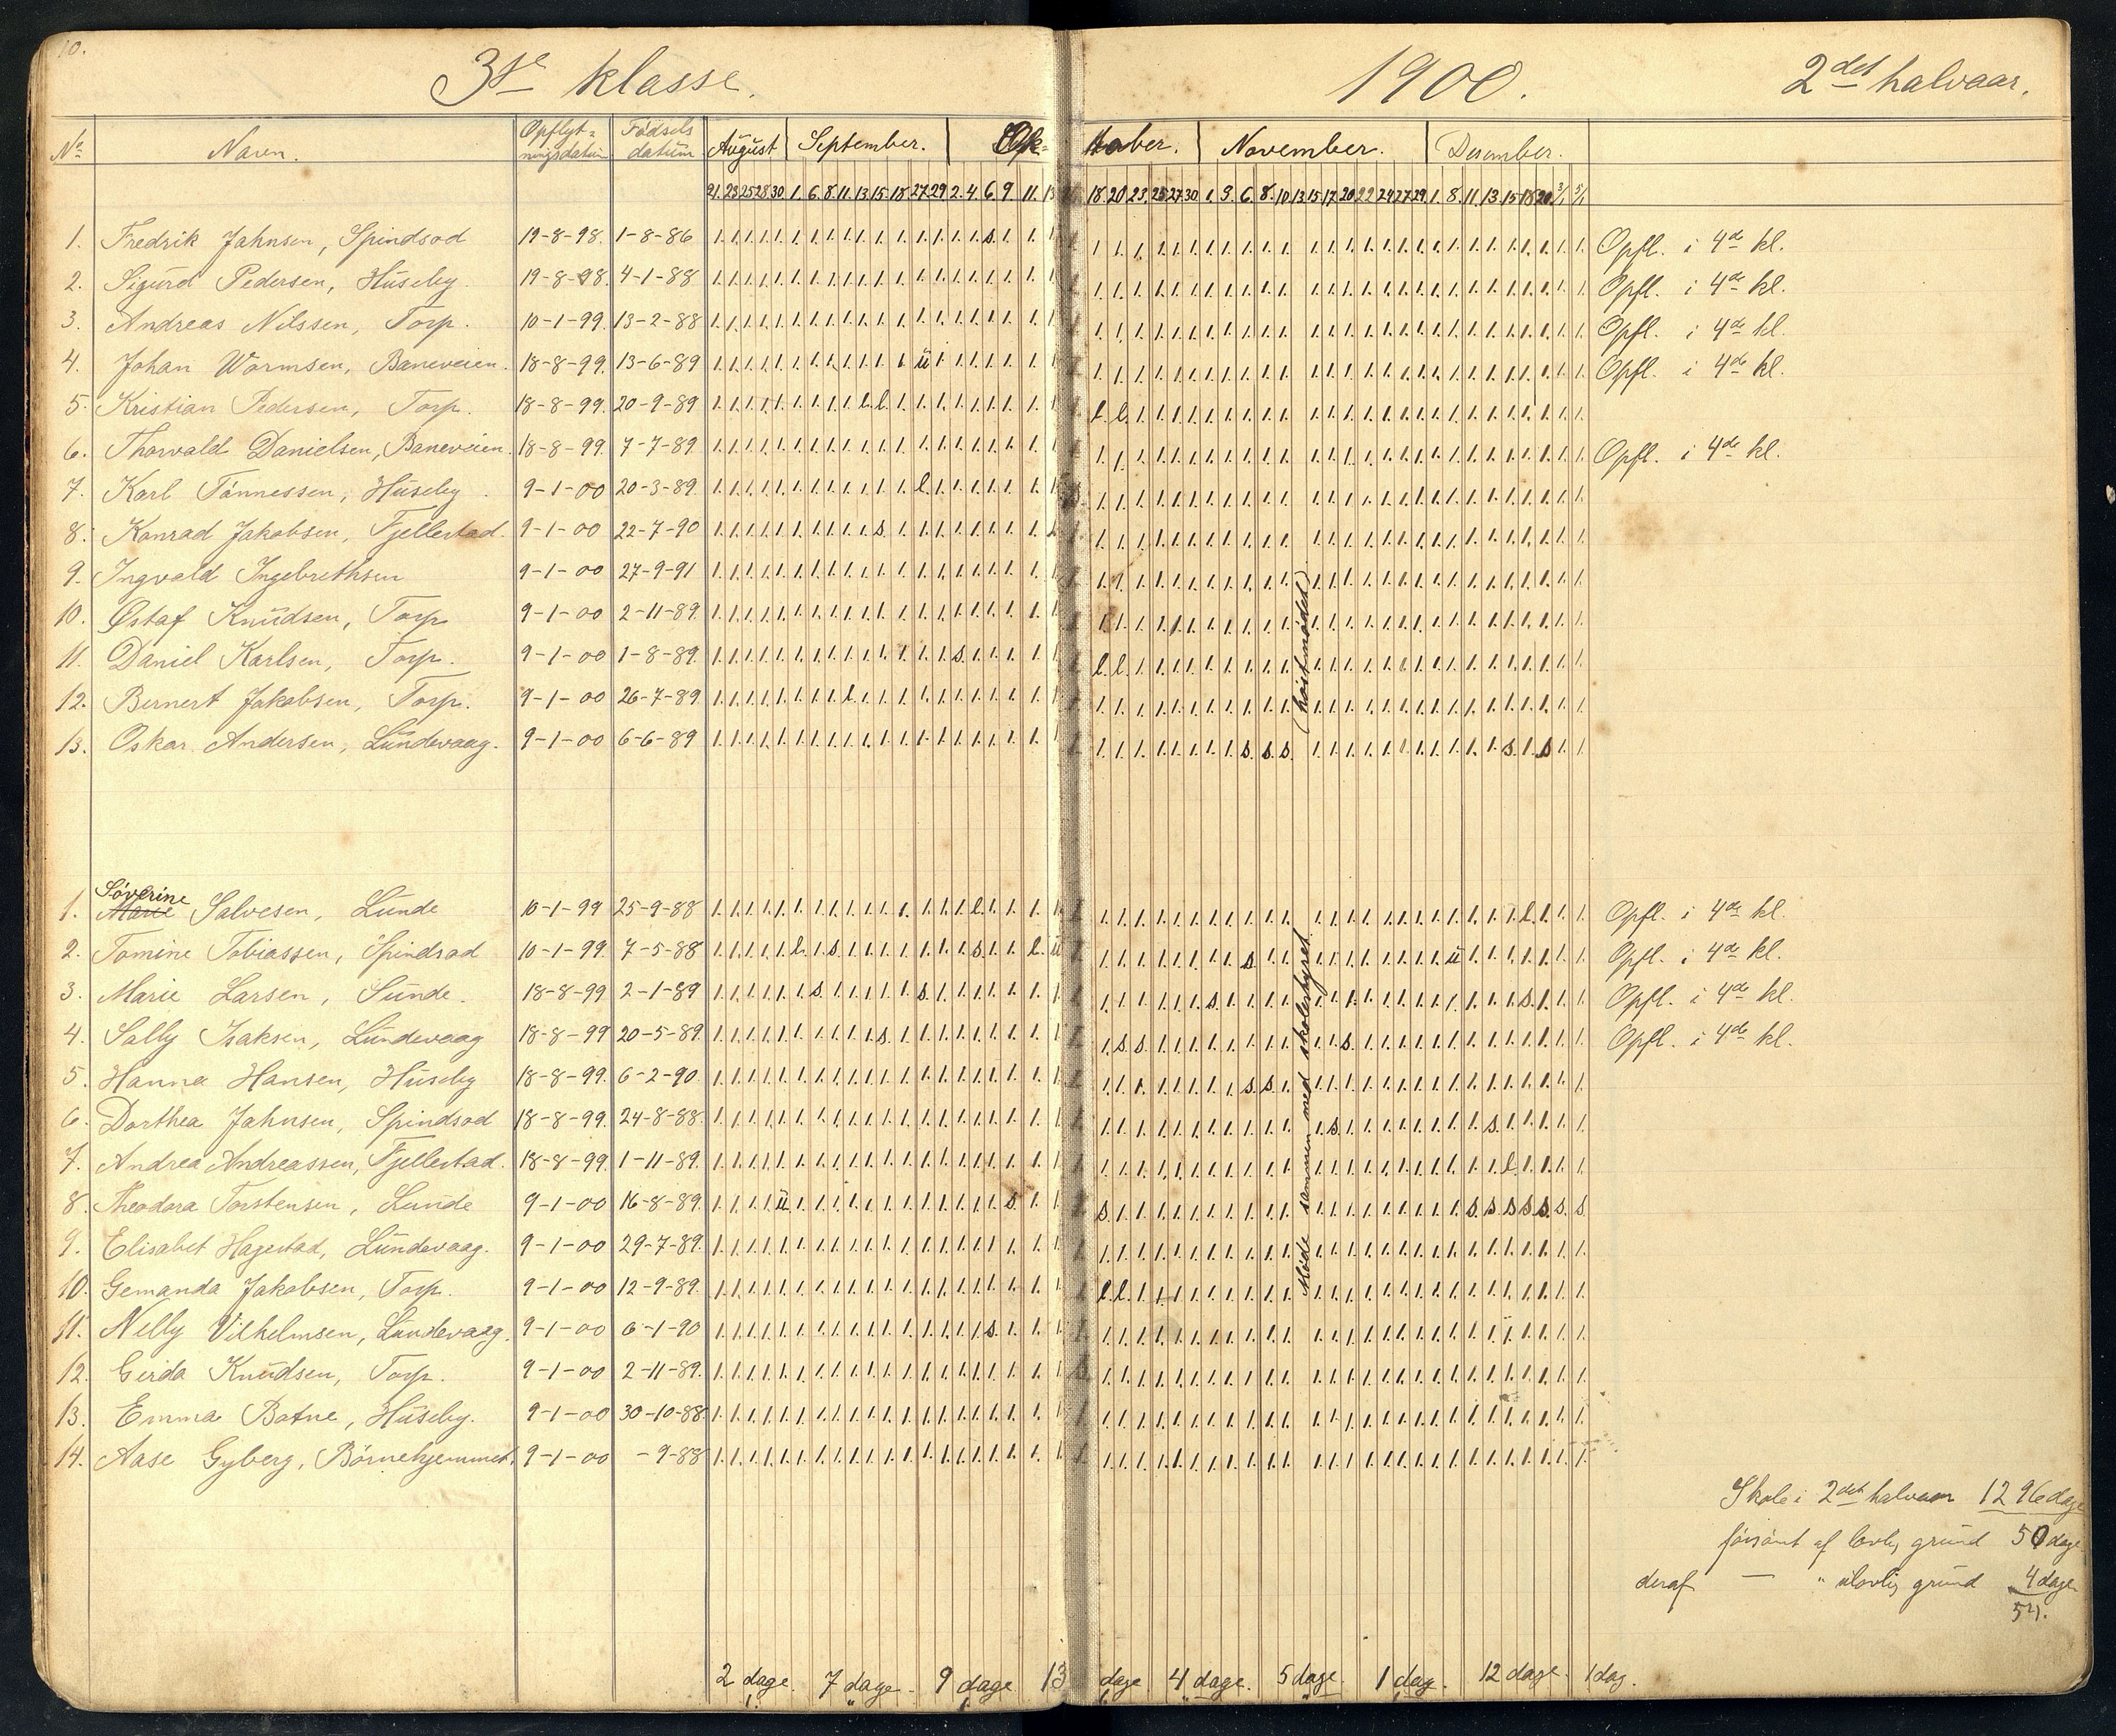 10.
3die klasse.
1900.
2det halvaar.
No Navn. Opflyt= ningsdatum Fødsels datum August September. Ok= tober. November. Desember.
21. 23 25 28 30 1. 6. 8. 11. 13. 15. 18. 27. 29 2. 4. 6. 9. 11. 13 18. 20. 23. 25 27 30 1. 3. 6. 8. 10 13 15 17 20 22 24 27 29 1. 8. 11. 13. 15 18 20 3/1 5/1
1. Fredrik Jahnsen, Spindsod 19-8-98. 1-8-86 Opfl. i 4de kl.
2. Sigurd Pedersen, Huseby. 19-8-98. 4-1-88 Opfl. i 4de kl.
3. Andreas Nilssen, Torp. 10-1-99. 13-2-88 Opfl. i 4de kl.
4. Johan Wormsen, Baneveien. 18-8-99. 13-6-89 Opfl. i 4de kl.
5. Kristian Pedersen, Torp. 18-8-99. 20-9-89
6. Thorvald Danielsen, Baneveien. 18-8-99. 7-7-89 Opfl. i 4de kl.
7. Karl Tønnessen, Huseby. 9-1-00 20-3-89.
8. Konrad Jakobsen, Fjellestad. 9-1-00 22-7-90
9. Ingvald Ingebrethsen 9-1-00 27-9-91
10. Østaf Knudsen, Torp 9-1-00 2-11-89.
11. Daniel Karlsen, Torp. 9-1-00 1-8-89.
12. Bernert Jakobsen, Torp. 9-1-00 26-7-89
13. Oskar Andersen, Lundevaag. 9-1-00 6-6-89
Møde sammen med skolestyret (høstmødet)
Søverine
1. Marie Salvesen, Lunde 10-1-99 25-9-88 Opfl. i 4de kl.
2. Tomine Tobiassen, Spindsod 10-1-99. 7-5-88 Opfl. i 4de kl.
3. Marie Larsen, Sunde. 18-8-99 2-1-89 Opfl. i 4de kl.
4. Sally Isaksen, Lundevaag 18-8-99 20-5-89 Opfl. i 4de kl.
5. Hanna Hansen, Huseby 18-8-99. 6-2-90
6. Dorthea Jahnsen, Spindsod 18-8-99. 24-8-88.
7. Andrea Andreassen, Fjellestad. 18-8-99. 1-11-89.
8. Theodora Torstensen, Lunde 9-1-00 16-8-89.
9. Elisabet Hagestad, Lundevaag. 9-1-00 29-7-89.
10. Gemanda Jakobsen, Torp. 9-1-00 12-9-89.
11. Nelly Vilhelmsen, Lundevaag. 9-1-00 6-1-90
12. Gerda Knudsen, Torp. 9-1-00 2-11-89.
13. Emma Botne, Huseby. 9-1-00 30-10-88
14. Aase Gyberg, Børnehjemmet. 9-1-00 -9-88
Skole i 2det halvaar 1296 dage
forsømt af lovlig grund 50 dage
deraf — " ulovlig grund 4 dage
54.
2 dage. 7 dage. 9 dage 13 dage 4 dage. 5 dage. 1 dag. 12 dage. 1 dag.